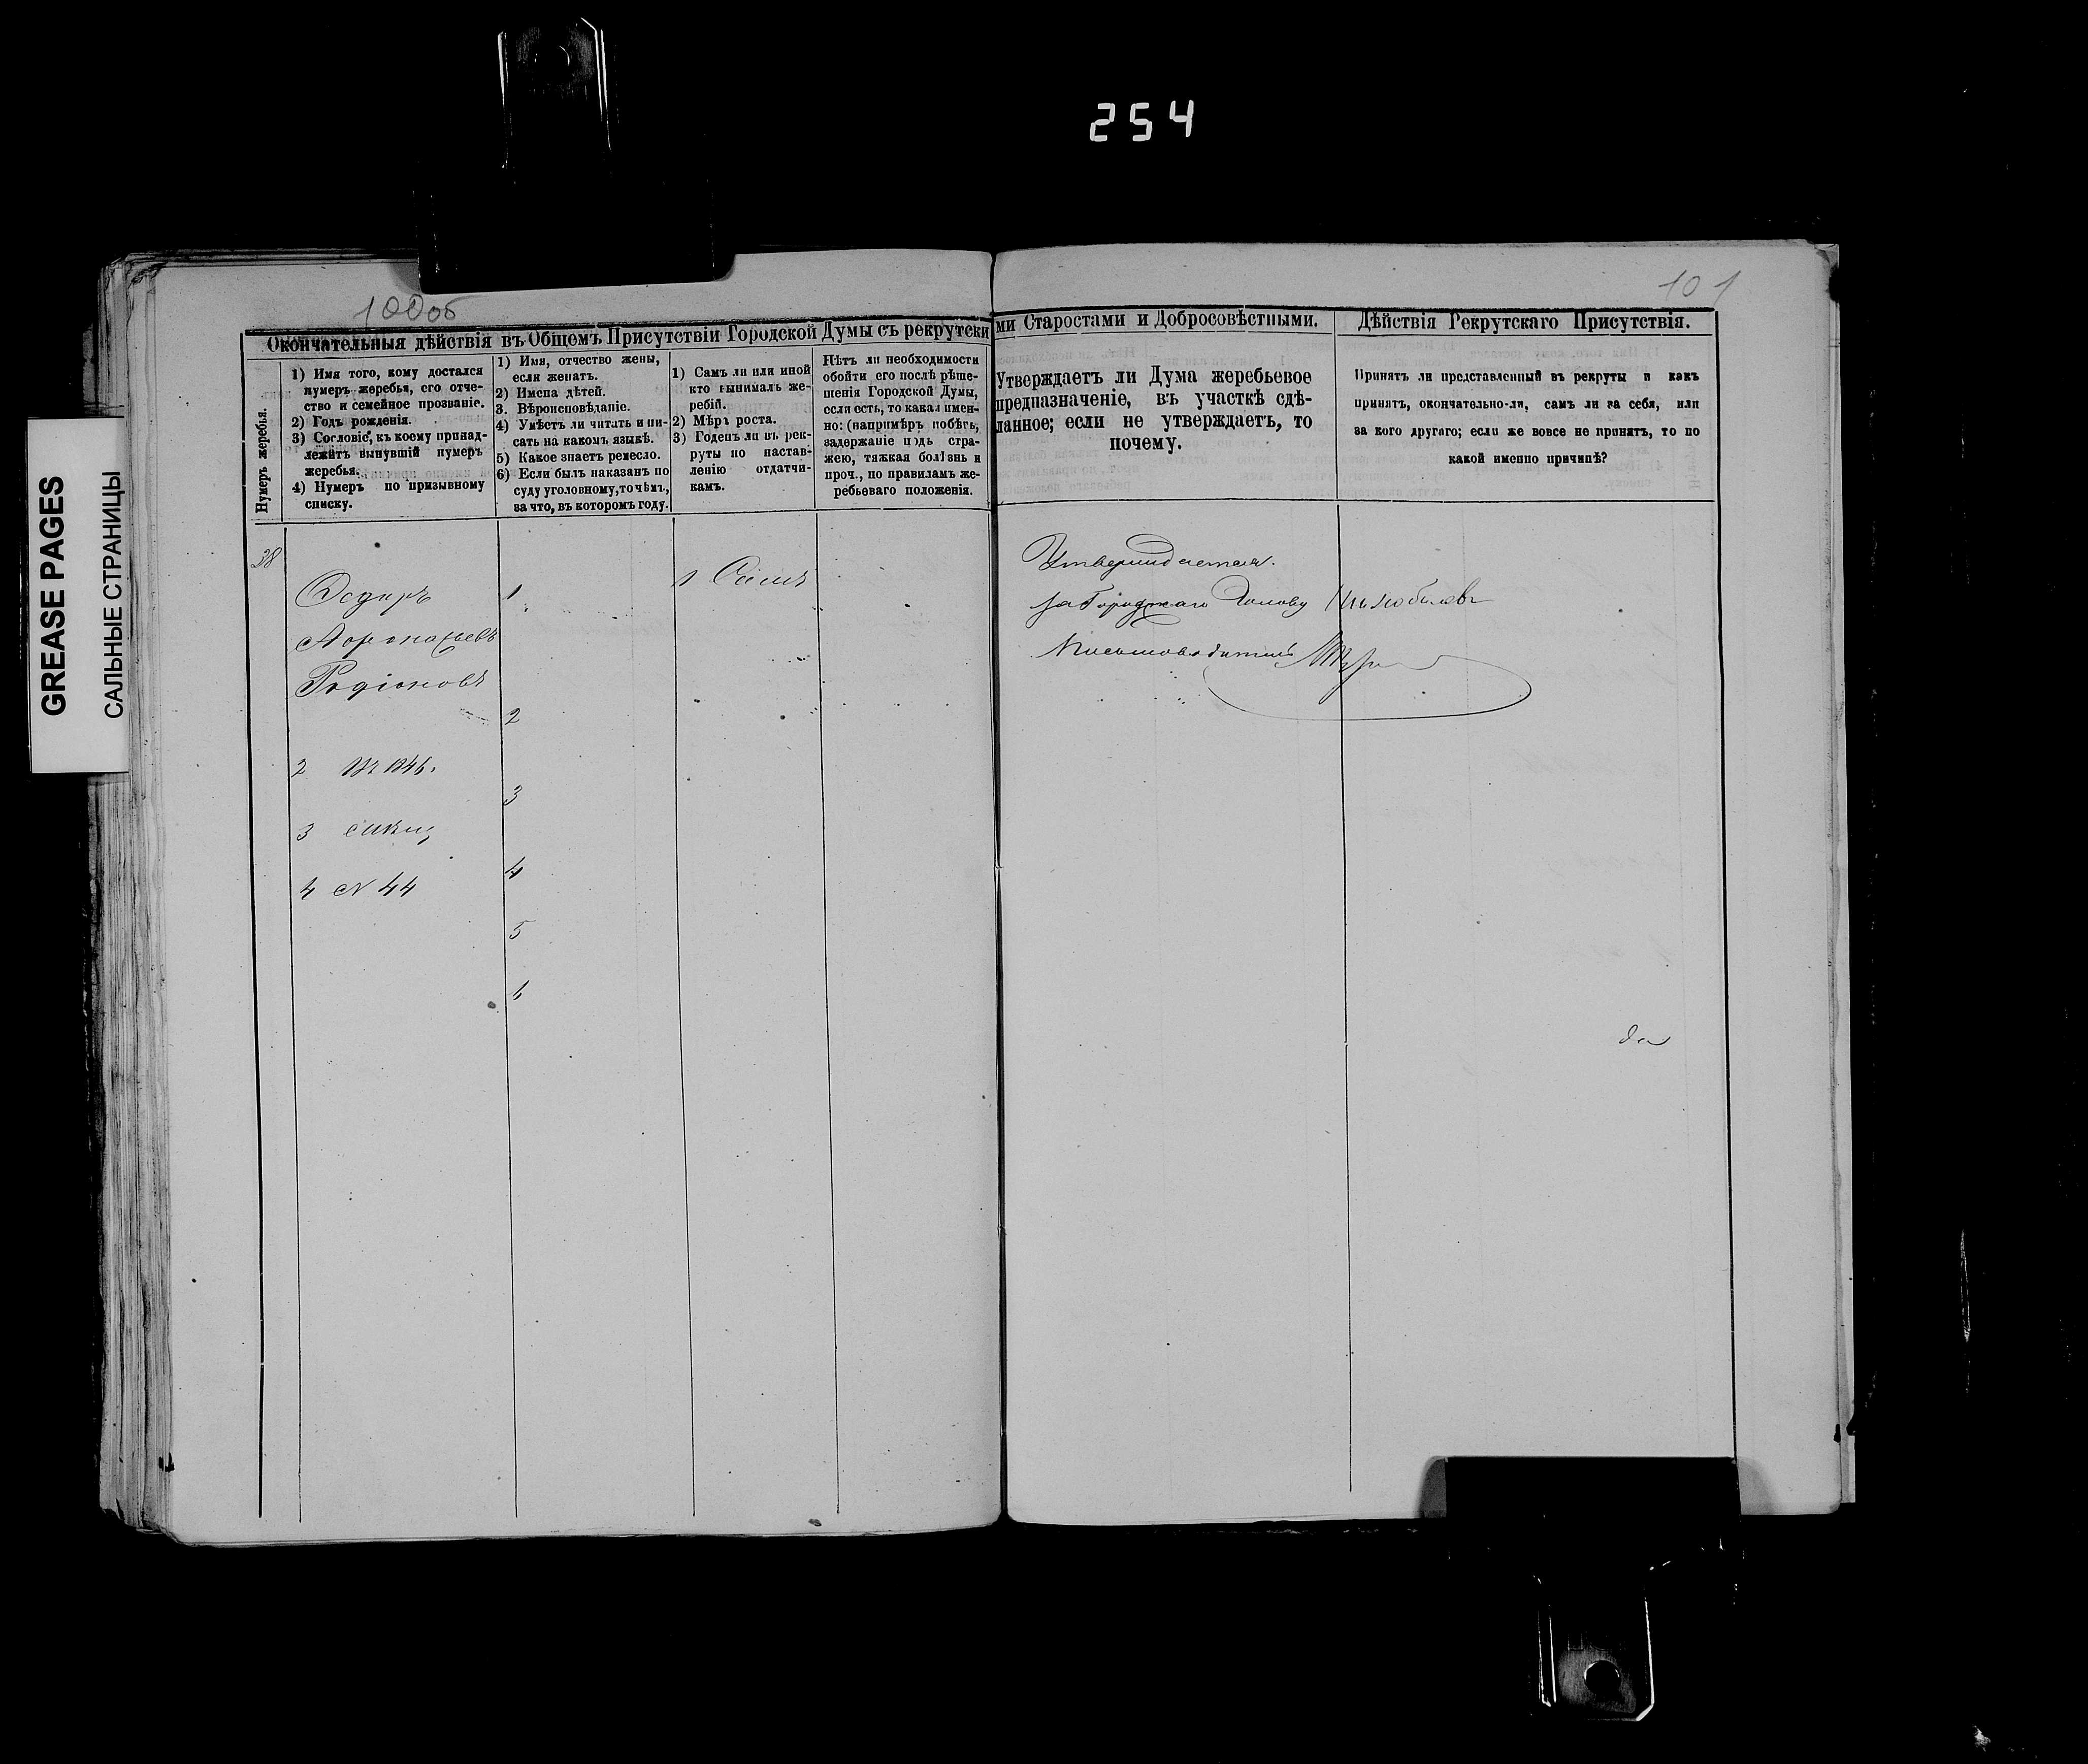 254
GREASE PAGES
САЛЬНЫЕ СТРАНИЦЫ
100об
101
Окончательныя дѣйствія въ Общемъ Присутствіи Городской Думы съ рекрутски
ми Старостами и Добросовѣстными.
Дѣйствія Рекрутскаго Присутствія.
Нумеръ жеребья.
1) Имя того, кому достался
нумеръ жеребья, его отче-
ство и семейное прозваніе.
2) Годъ рожденія.
3) Сословіе, къ коему принад-
лежитъ вынувшій нумеръ
жеребья.
4) Нумеръ по призывному
списку.
1) Имя, отчество жены,
если женатъ.
2) Имена дѣтей.
3. Вѣроисповѣданіе.
4) Умѣетъ ли читать и пи-
сать на какомъ языкѣ.
5) Какое знаетъ ремесло.
6) Если былъ наказанъ по
суду уголовному, то чѣмъ,
за что, въ которомъ году.
1) Самъ ли или иной
кто вынималъ же-
ребій.
2) Мѣръ роста.
3) Годенъ ли въ рек-
руты по настав-
ленію отдатчи-
камъ.
Нѣтъ ли необходимости
обойти его послѣ рѣше-
шенія Городской Думы,
если есть, то какая имен-
но: (напримѣръ побѣгъ,
задержаніе подъ стра-
жею, тяжкая болѣзнь и
проч., по правиламъ же-
ребьеваго положенія.
Утверждаетъ ли Дума жеребьевое
предназначеніе, въ участкѣ сдѣ-
ланное; если не утверждаетъ, то
почему.
Принятъ ли представленный въ рекруты и какъ
принятъ, окончательно-ли, самъ ли за себя, или
за кого другаго; если же вовсе не принятъ, то по
какой именно причинѣ?
38
Ѳедоръ
Афонасьевъ
Родіоновъ
2 Въ 1846.
3
4 N 44
1
2
3
4
5
6
1 Самъ
Утверждается.
За Городскаго Голову
Письмоводитель
да